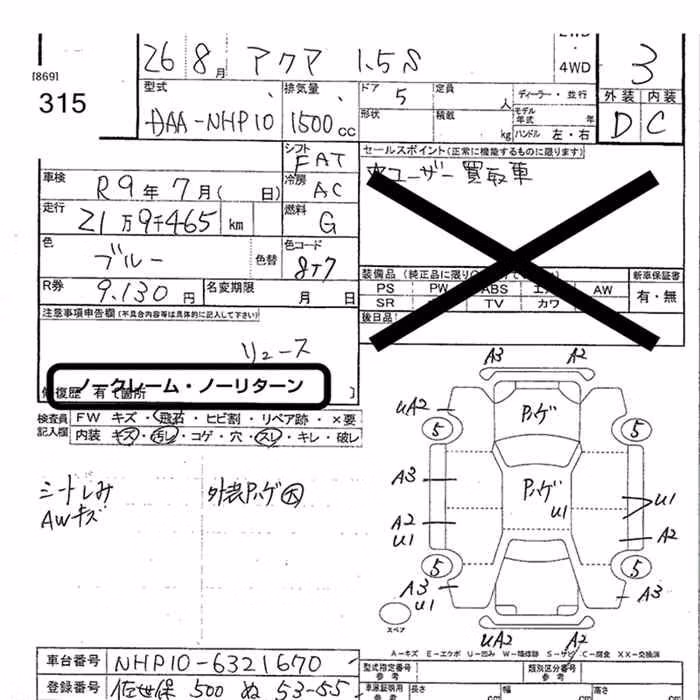 26 8月 アクア 1.5S
4WD
3
[869]
315
型式
DAA-NHP10
排気量
1500 cc
ドア 5
定員 人
ディーラー・並行
形状
積載 kg
モデル年式 年
ハンドル 左・右
外装 内装
D C
シフト
FAT
セールスポイント(正常に機能するものに限ります)
ユーザー買取車
車検
R9年7月( 日)
冷房
AC
走行
21万9千465 km
燃料
G
色
ブルー
色替
色コード
8T7
装備品
新車保証書
PS PW ABS AW
SR TV カワ
有・無
R券
9.130円
名変期限
月 日
後日品
注意事項申告欄(不具合内容等は具体的に記入して下さい)
リュース
ノークレーム・ノーリターン
検査員記入欄
FW キズ・飛石・ヒビ割・リペア跡・×要
内装 キズ・汚レ・コゲ・穴・スレ・キレ・破レ
シートしみ
AWキズ
外装Pハゲ大
A3 A2
UA2
5 5
Pハゲ
A3
Pハゲ
U1
U1
A2
U1
A2
5 5
A3
U1
A3
スペア
UA2 A2
A-キズ E-エクボ U-凹み W-補修跡 S-サビ C-腐食 XX-交換済
車台番号
NHP10-6321670
型式指定番号
参考
類別区分番号
参考
登録番号
佐世保 500 ぬ 53-55
長さ
幅
高さ